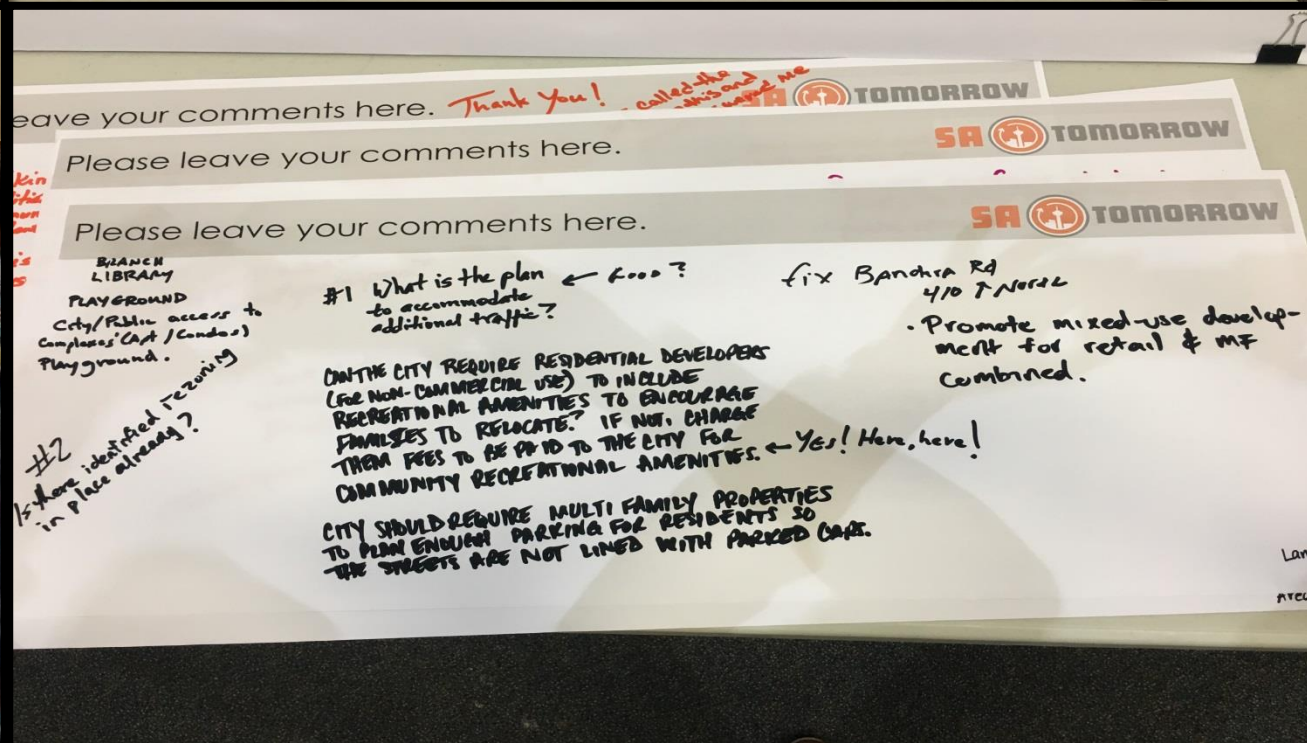 eave your comments here. Thank You!
called the
this and
me
TOMORROW
Please leave your comments here.
SA TOMORROW
Please leave your comments here.
SA TOMORROW
BRANCH
LIBRARY
PLAYGROUND
City/Public access to
Complexes' (Apt / Condos)
Playground.
#2
Is there identified rezoning
in place already?
#1 What is the plan ←
to accommodate
additional traffic?
CAN THE CITY REQUIRE RESIDENTIAL DEVELOPERS
(FOR NON-COMMERCIAL USE) TO INCLUDE
RECREATIONAL AMENITIES TO ENCOURAGE
FAMILIES TO RELOCATE? IF NOT, CHARGE
THEM FEES TO BE PAID TO THE CITY FOR
COMMUNITY RECREATIONAL AMENITIES. ← Yes! Here, here!
CITY SHOULD REQUIRE MULTI FAMILY PROPERTIES
TO PLAN ENOUGH PARKING FOR RESIDENTS SO
THE STREETS ARE NOT LINED WITH PARKED CARS.
fix Bandera Rd
410 ↑ North
• Promote mixed-use develop-
ment for retail & MF
combined.